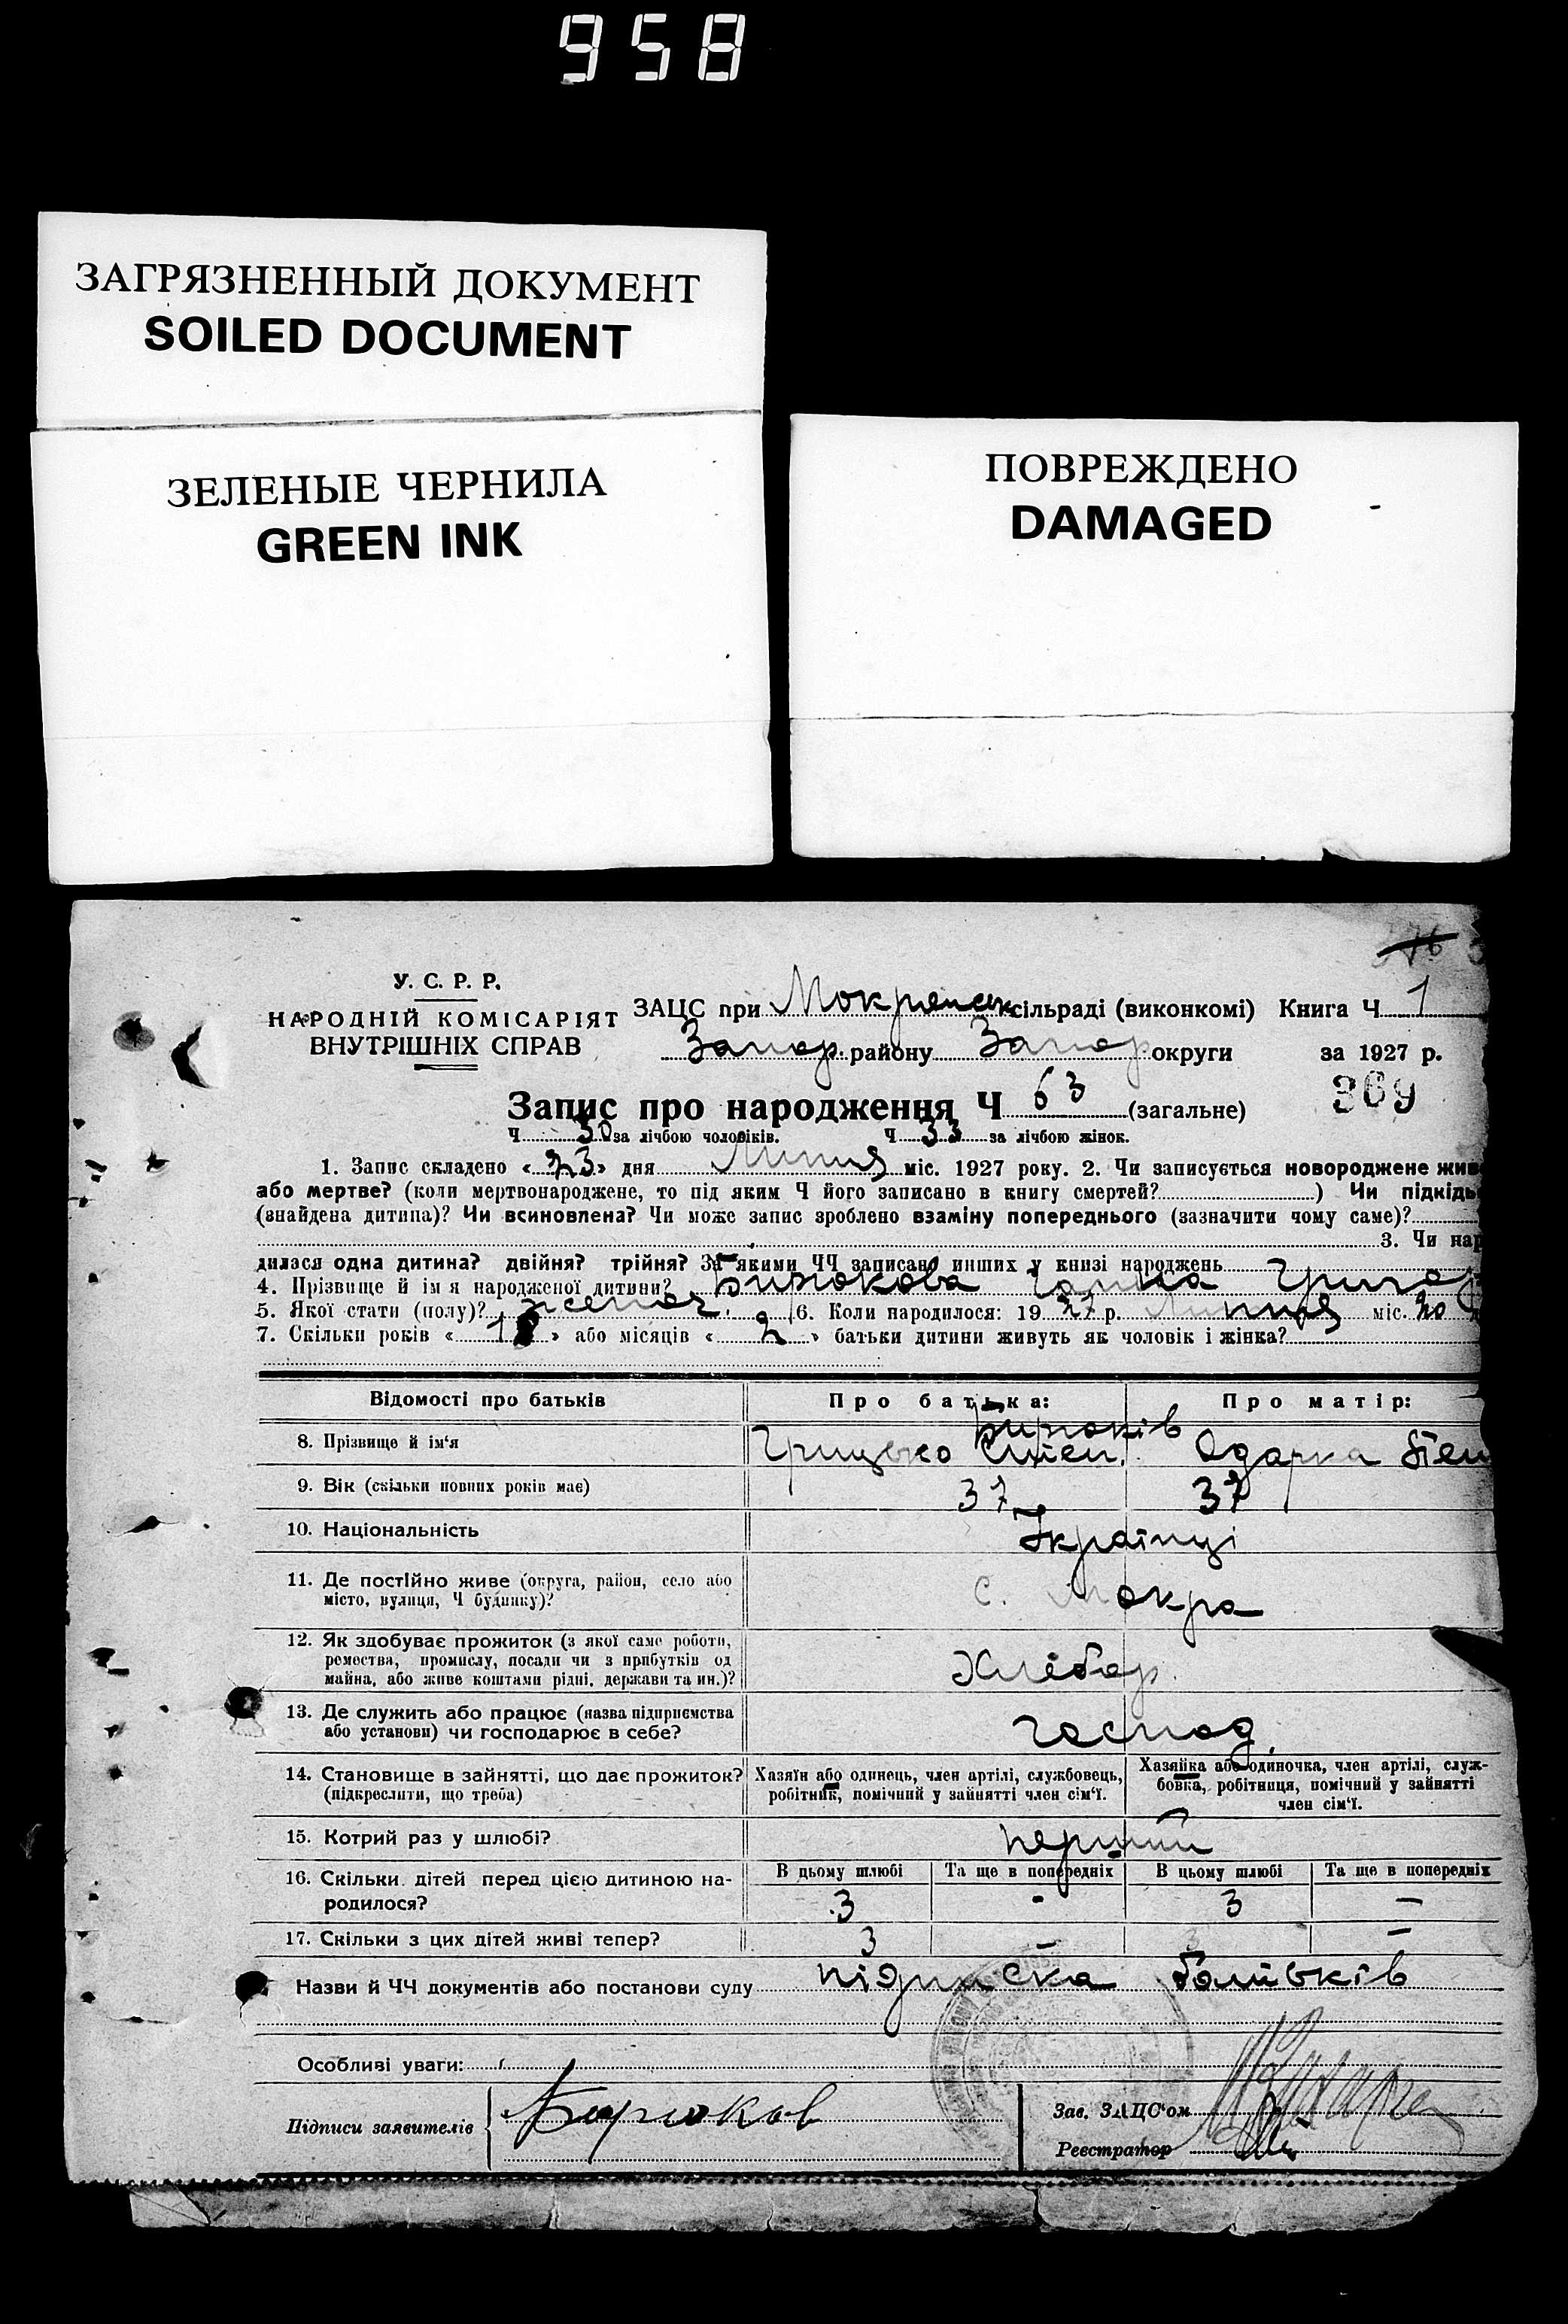 958
ЗАГРЯЗНЕННЫЙ ДОКУМЕНТ
SOILED DOCUMENT
ЗЕЛЕНЫЕ ЧЕРНИЛА
GREEN INK
ПОВРЕЖДЕНО
DAMAGED
У. С. Р. Р.
НАРОДНІЙ КОМІСАРІЯТ
ВНУТРІШНІХ СПРАВ
ЗАЦС при Мокрянськ сільраді (виконкомі) Книга Ч 1
Запор. району Запор округи за 1927 р.
Запис про народження Ч 63 (загальне) 369
Ч 30 за лічбою чоловіків. Ч 33 за лічбою жінок.
1. Запис складено « 23 » дня Липня міс. 1927 року. 2. Чи записується новороджене жив
або мертве? (коли мертвонароджене, то під яким Ч його записано в книгу смертей? ) Чи підкідь
(знайдена дитина)? Чи всиновлена? Чи може запис зроблено взаміну попереднього (зазначити чому саме)?
3. Чи нар
дилася одна дитина? двійня? трійня? За якими ЧЧ записані инших у книзі народжень
4. Прізвище й ім я народженої дитини? Бирюкова Ганна Григор
5. Якої стати (полу)? женоч. 6. Коли народилося: 19 27 р. Липня міс. 20
7. Скільки років « » або місяців « 2 » батьки дитини живуть як чоловік і жінка?
Відомості про батьків
Про батька:
Про матір:
8. Прізвище й ім'я
Бирюків
Грицько Одарка
9. Вік (скільки повних років має)
37 37
10. Національність
Українці
11. Де постійно живе (округа, район, село або
місто, вулиця, Ч будинку)?
с. Мокра
12. Як здобуває прожиток (з якої саме роботи,
ремества, промислу, посади чи з прибутків од
майна, або живе коштами рідні, держави та ин.)?
Хлібор.
13. Де служить або працює (назва підприємства
або установи) чи господарює в себе?
господ.
14. Становище в зайнятті, що дає прожиток?
(підкреслити, що треба)
Хазяїн або одинець, член артілі, службовець,
робітник, помічний у зайнятті член сім'ї.
Хазяйка або одиночка, член артілі, служ-
бовка, робітниця, помічний у зайнятті
член сім'ї.
15. Котрий раз у шлюбі?
перший
16. Скільки дітей перед цією дитиною на-
родилося?
В цьому шлюбі Та ще в попередніх В цьому шлюбі Та ще в попередніх
3 - 3 —
17. Скільки з цих дітей живі тепер?
3 3 —
Назви й ЧЧ документів або постанови суду підписка батьків
Особливі уваги:
Підписи заявителів Бирюков
Зав. ЗАЦС'ом
Реєстратор